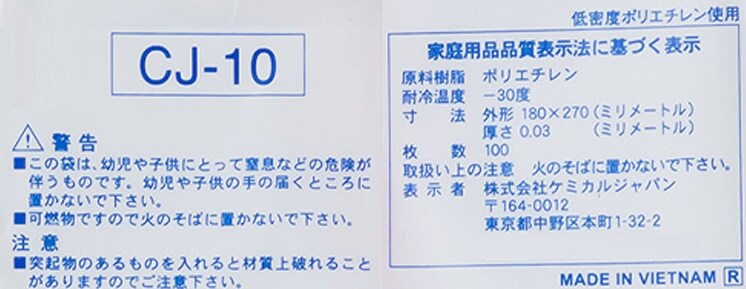 CJ-10
⚠ 警告
■この袋は、幼児や子供にとって窒息などの危険が
伴うものです。幼児や子供の手の届くところに
置かないで下さい。
■可燃物ですので火のそばに置かないで下さい。
注意
■突起物のあるものを入れると材質上破れること
がありますのでご注意下さい。
低密度ポリエチレン使用
家庭用品品質表示法に基づく表示
原料樹脂 ポリエチレン
耐冷温度 −30度
寸法 外形 180×270(ミリメートル)
厚さ 0.03 (ミリメートル)
枚数 100
取扱い上の注意 火のそばに置かないで下さい。
表示者 株式会社ケミカルジャパン
〒164-0012
東京都中野区本町1-32-2
MADE IN VIETNAM R